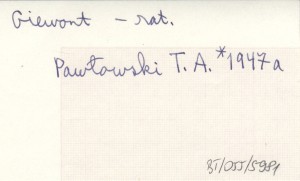 Giewont - rat.
Pawłowski T. A. *1947a
BT/OJJ/5981